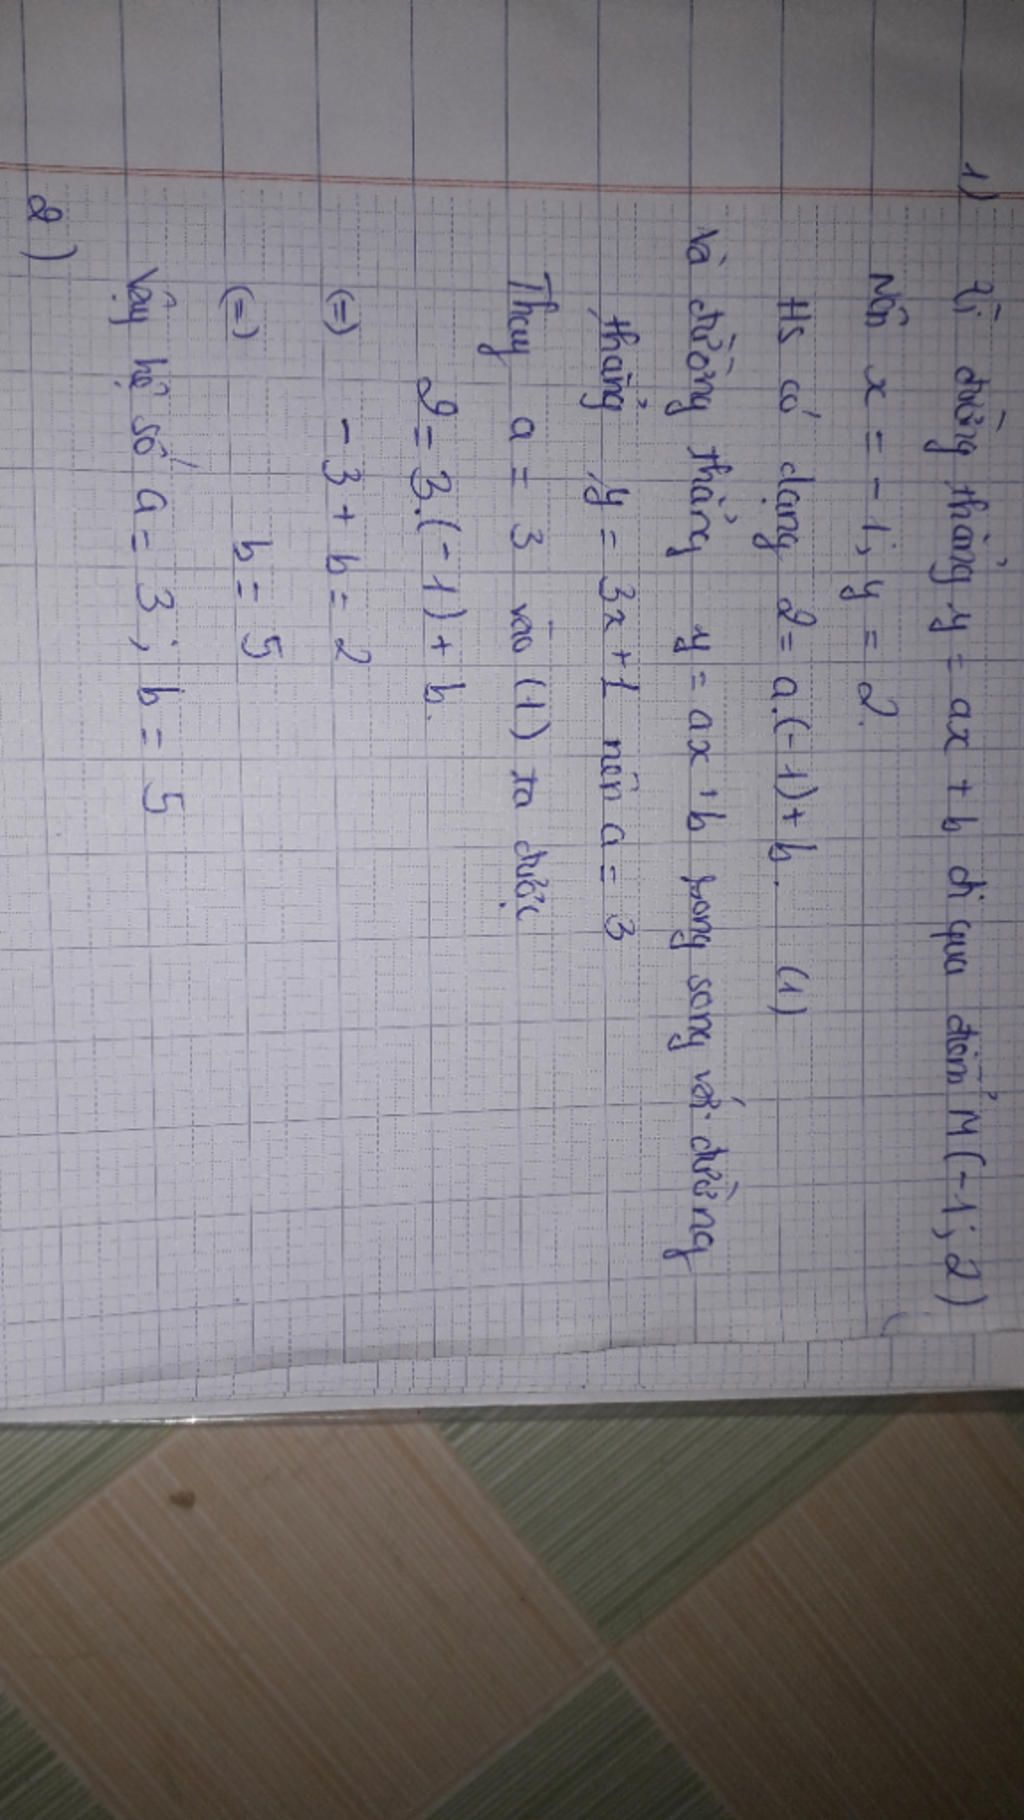 1) Vì đường thẳng y = ax + b đi qua điểm M(-1; 2)
Nên x = -1; y = 2.
Hs có dạng 2 = a.(-1) + b. (1)
Và đường thẳng y = ax + b song song với đường
thẳng y = 3x + 1 nên a = 3
Thay a = 3 vào (1) ta được
2 = 3.(-1) + b.
(=) -3 + b = 2
(=) b = 5
Vậy hệ số a = 3; b = 5
2)